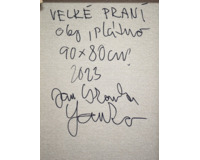 VELKÉ PRANÍ
olej, plátno
90x80cm
2023
Jan
Yanko